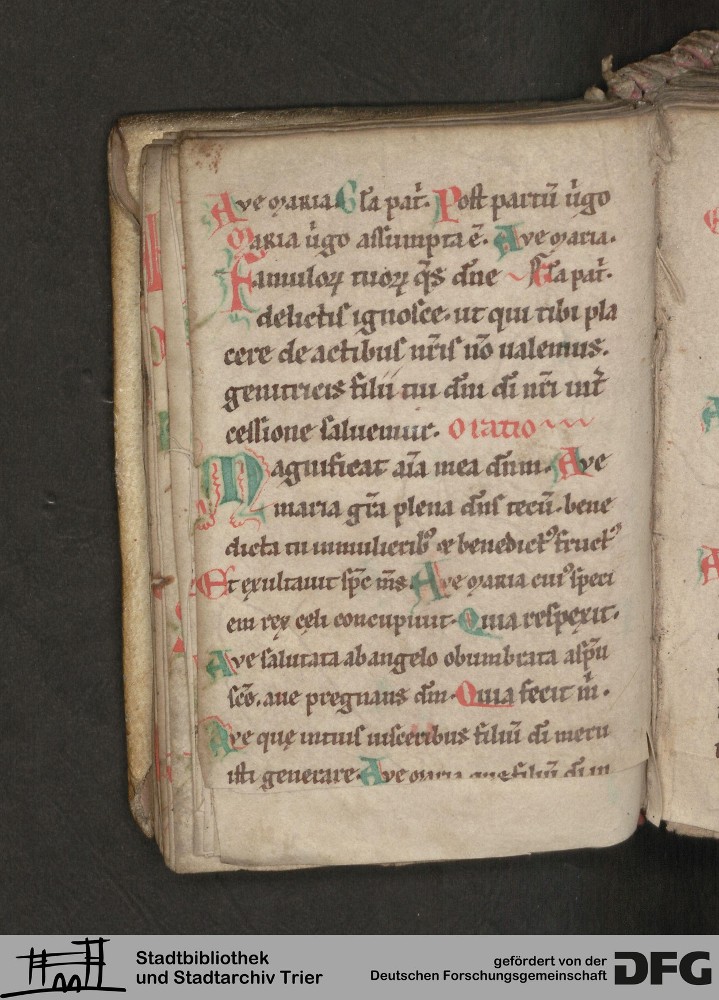 Ave maria. Gla pat̄. Post partū ṽgo
Maria ṽgo assumpta ē. Ave maria.
Famuloꝝ tuoꝝ q̄s dn̄e Gla pat̄.
delictis ignosce. ut qui tibi pla
cere de actibus nr̄is nō ualemus.
genitricis filii tui dn̄i di nr̄i int̄
cessione saluemur. Oratio
Magnificat aīa mea dn̄m. Ave
maria gr̄a plena dn̄s tecū. bene
dicta tu in mulierib⁹ & benedict⁹ fruct⁹
Et exultauit spc̄ m̄s Ave maria cui⁹ speci
em rex celi concupiuit. Quia respexit.
Ave salutata ab angelo obumbrata a sp̄u
sc̄o. aue pregnans dm̄. Quia fecit m̄.
Ave quę intuis uisceribus filiū di meru
isti generare. Ave maria que filiū di
Stadtbibliothek
und Stadtarchiv Trier
gefördert von der
Deutschen Forschungsgemeinschaft
DFG